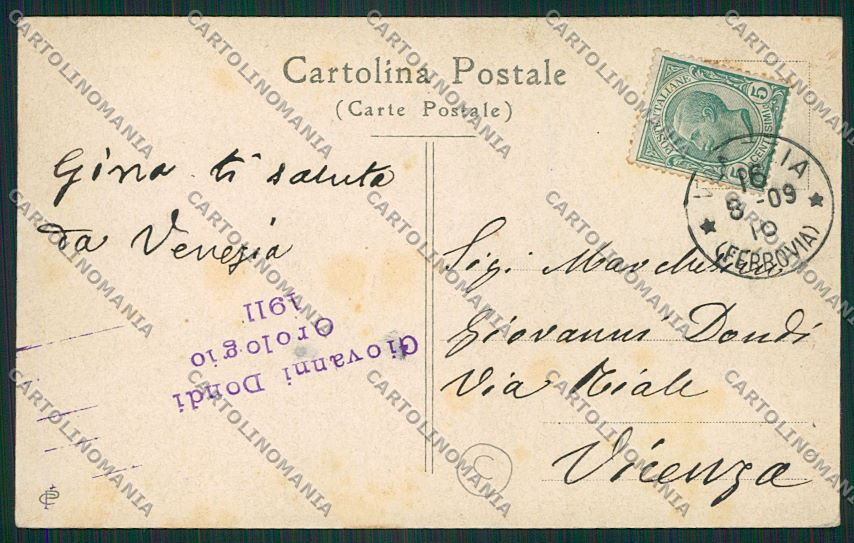 Cartolina Postale
(Carte Postale)
Gina ti saluta
da Venezia
Giovanni Dondi
Orologio
1911
POSTE ITALIANE
5
CENTESIMI
16
8 -09
19
(FERROVIA)
Giovanni Dondi
Via Riale
Vicenza
C
CARTOLINOMANIA